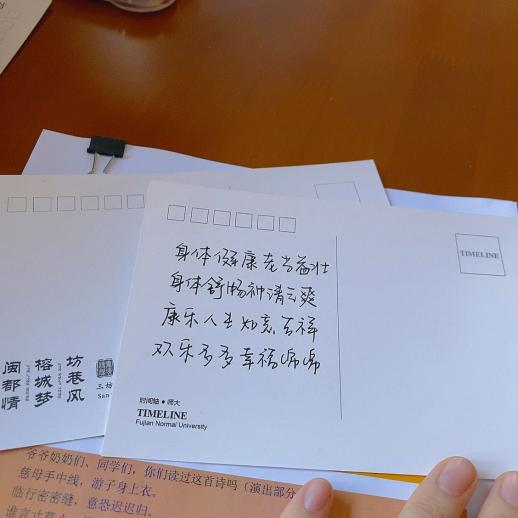 身体健康老当益壮
身体舒畅神清气爽
康乐人生如意吉祥
欢乐多多幸福绵绵
时间轴·师大
TIMELINE
Fujian Normal University
TIMELINE
坊巷风
榕城梦
闽都情
三坊
San
爷爷奶奶们、同学们，你们读过这首诗吗（演出部分
慈母手中线，游子身上衣。
临行密密缝，意恐迟迟归。
谁言寸草